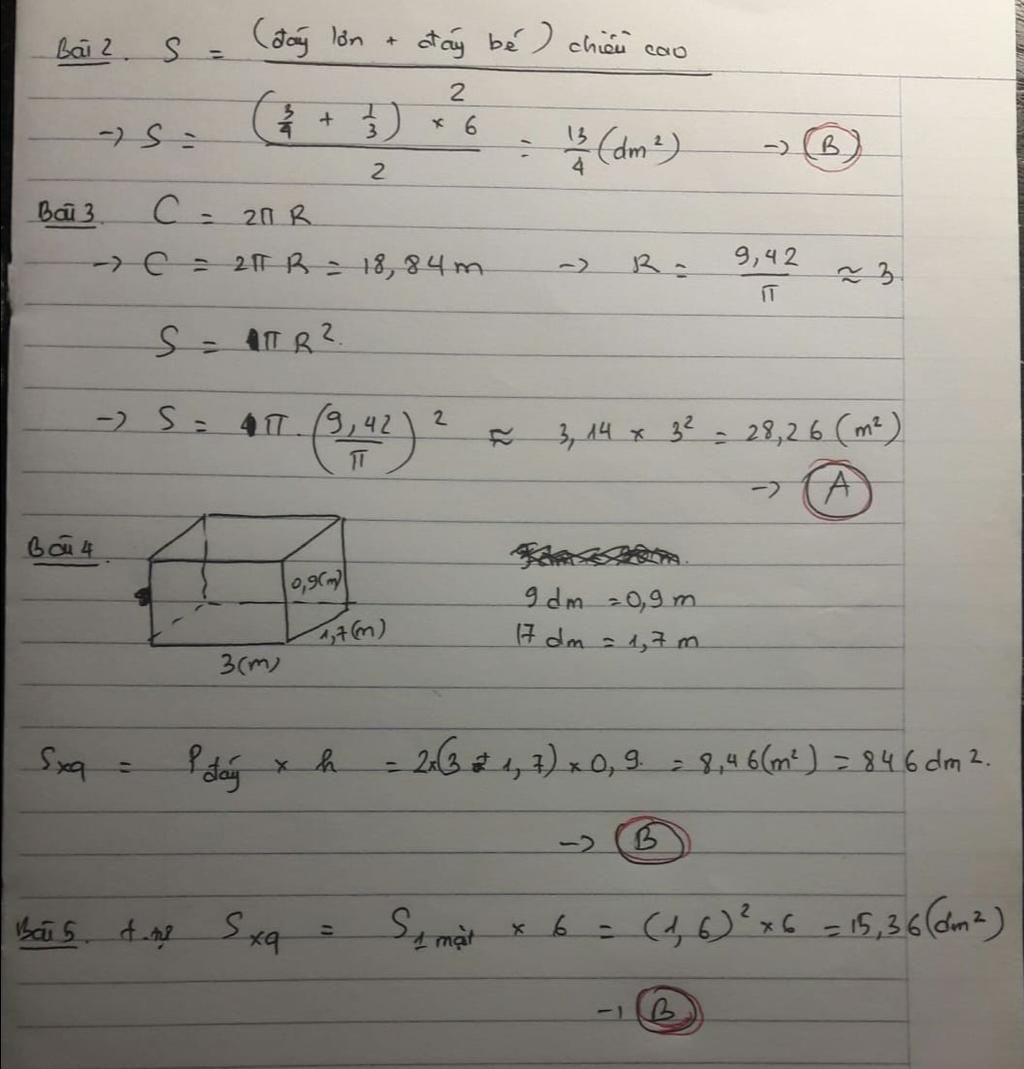 Bài 2. S = (đáy lớn + đáy bé) chiều cao / 2
→ S = (3/4 + 1/3) × 6 / 2 = 13/4 (dm²) → B
Bài 3. C = 2π R
→ C = 2π R = 18,84 m → R = 9,42 / π ≈ 3
S = π R².
→ S = π. (9,42 / π)² ≈ 3,14 × 3² = 28,26 (m²)
→ A
Bài 4.
0,9(m)
9 dm = 0,9 m
1,7(m)
17 dm = 1,7 m
3(m)
Sxq = Pđáy × h = 2×(3 + 1,7) × 0,9. = 8,46(m²) = 846 dm².
→ B
Bài 5. Sxq = S1 mặt × 6 = (1,6)² × 6 = 15,36 (dm²)
→ B